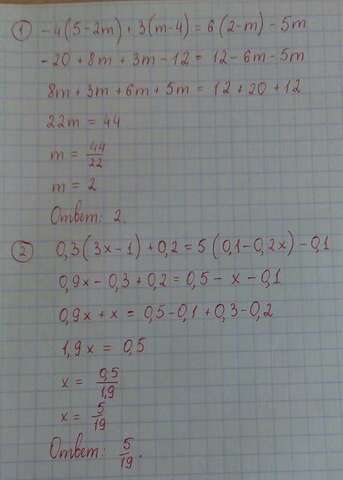 ① -4(5-2m)+3(m-4)=6(2-m)-5m
-20+8m+3m-12=12-6m-5m
8m+3m+6m+5m=12+20+12
22m=44
m=44/22
m=2
Ответ: 2.
② 0,3(3x-1)+0,2=5(0,1-0,2x)-0,1
0,9x-0,3+0,2=0,5-x-0,1
0,9x+x=0,5-0,1+0,3-0,2
1,9x=0,5
x=0,5/1,9
x=5/19
Ответ: 5/19.